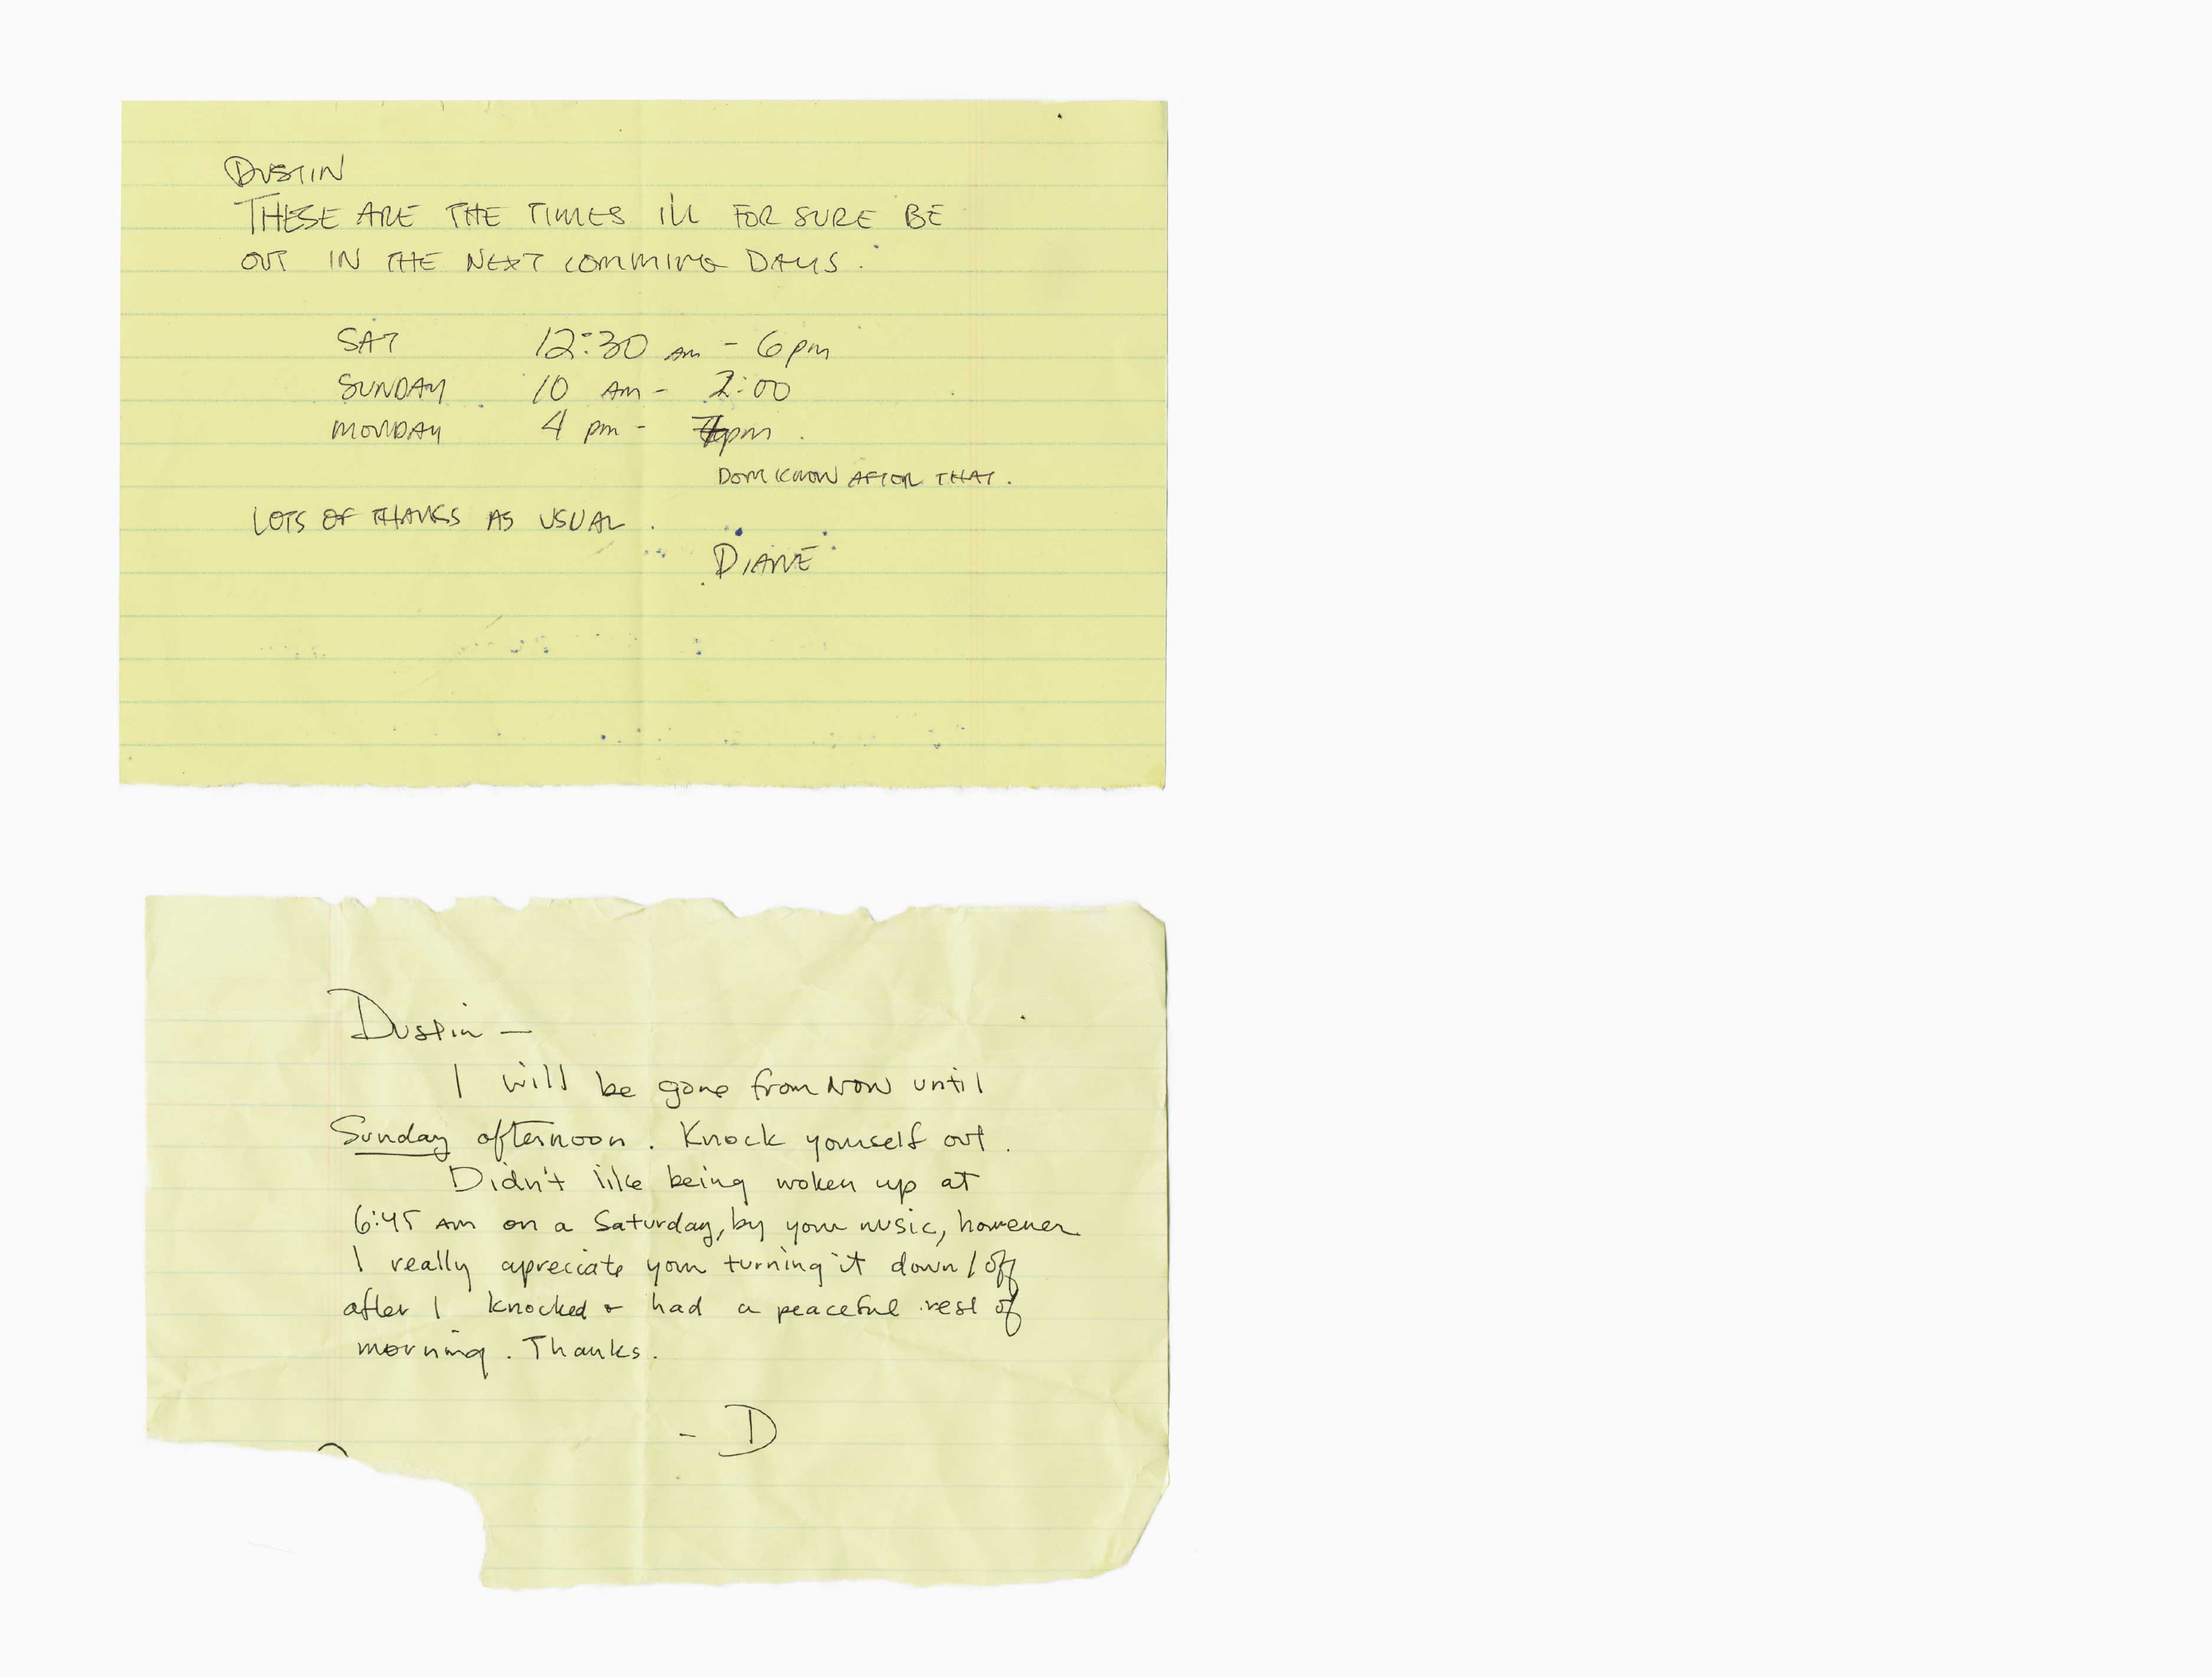 DUSTIN
THESE ARE THE TIMES I'LL FOR SURE BE
OUT IN THE NEXT COMMING DAYS.
SAT 12:30 AM - 6pm
SUNDAY 10 AM - 2:00
MONDAY 4 pm - pm.
DON'T KNOW AFTER THAT.
LOTS OF THANKS AS USUAL.
DIANE
Dustin —
I will be gone from NOW until
Sunday afternoon. Knock yourself out.
Didn't like being woken up at
6:45 AM on a Saturday, by your music, however
I really apreciate your turning it down / off
after I knocked & had a peaceful rest of
morning. Thanks.
- D